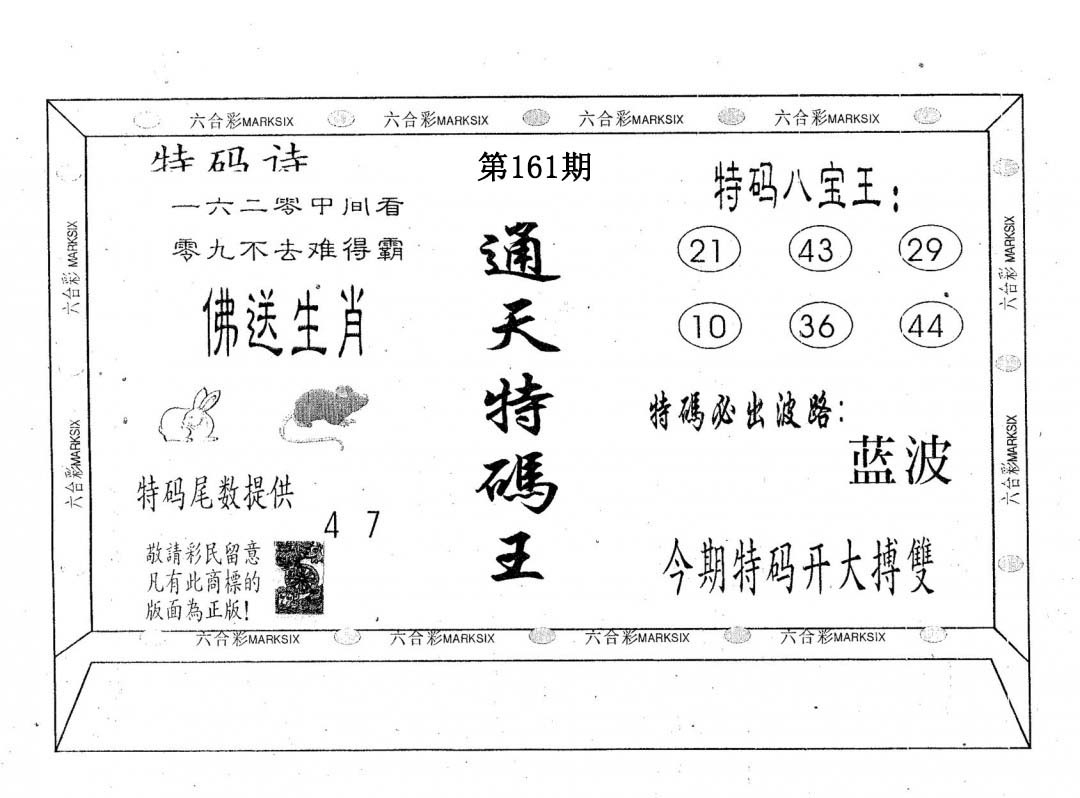 六合彩MARKSIX 六合彩MARKSIX 六合彩MARKSIX 六合彩MARKSIX
特码诗
一六二零中间看
零九不去难得霸
佛送生肖
特码尾数提供
4 7
敬請彩民留意
凡有此商標的
版面為正版!
第161期
通天特碼王
特码八宝王:
21 43 29
10 36 44
特碼必出波路:
蓝波
今期特码开大搏雙
六合彩MARKSIX
六合彩MARKSIX
六合彩MARKSIX
六合彩MARKSIX
六合彩MARKSIX 六合彩MARKSIX 六合彩MARKSIX 六合彩MARKSIX